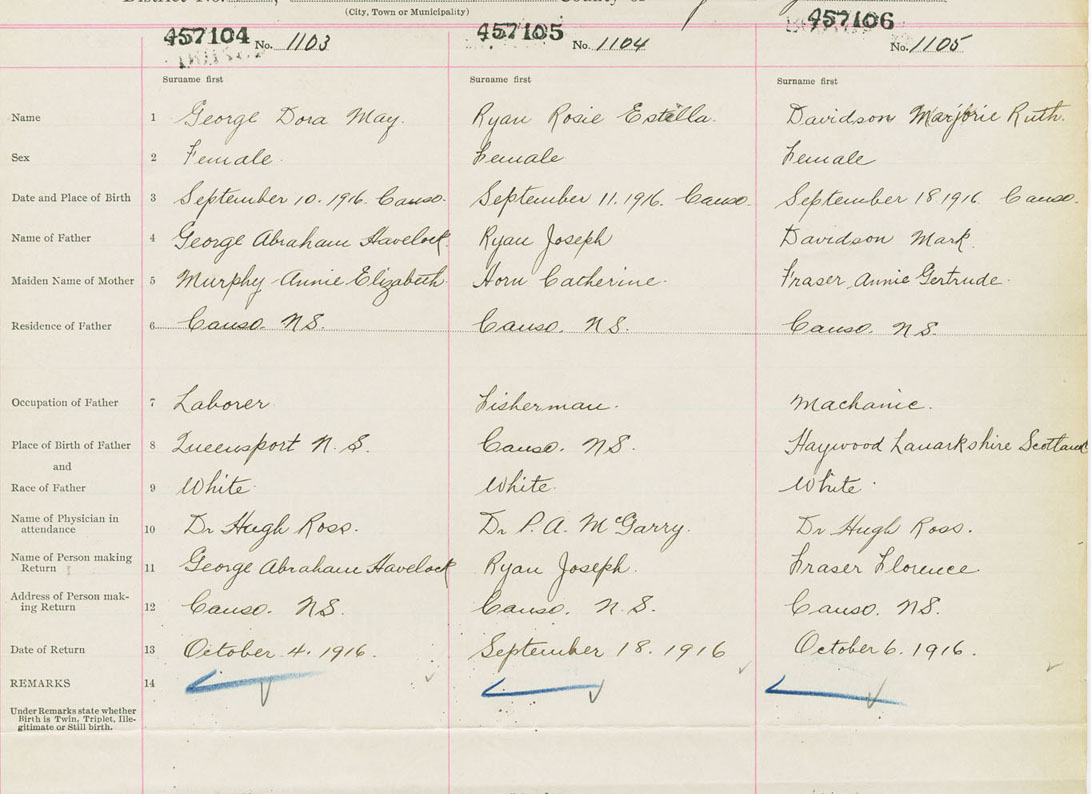 District No. County of
(City, Town or Municipality)
457104 No. 1103 457105 No. 1104 457106 No. 1105
Surname first Surname first Surname first
Name 1 George Dora May. Ryan Rosie Estella. Davidson Marjorie Ruth.
Sex 2 Female. Female Female
Date and Place of Birth 3 September 10. 1916. Canso. September 11. 1916. Canso. September 18 1916 Canso.
Name of Father 4 George Abraham Havelock. Ryan Joseph Davidson Mark.
Maiden Name of Mother 5 Murphy Annie Elizabeth. Horn Catherine. Fraser Annie Gertrude.
Residence of Father 6 Canso. N.S. Canso. N.S. Canso. N.S.
Occupation of Father 7 Laborer Fisherman. Machanic.
Place of Birth of Father 8 Queensport N.S. Canso. N.S. Haywood Lanarkshire Scotland
and
Race of Father 9 White. White. White.
Name of Physician in
attendance 10 Dr Hugh Ross. Dr P. A. McGarry. Dr Hugh Ross.
Name of Person making
Return 11 George Abraham Havelock Ryan Joseph. Fraser Florence
Address of Person mak-
ing Return 12 Canso. N.S. Canso. N.S. Canso. N.S.
Date of Return 13 October 4. 1916. September 18. 1916 October 6. 1916.
REMARKS 14
Under Remarks state whether
Birth is Twin, Triplet, Ille-
gitimate or Still birth.